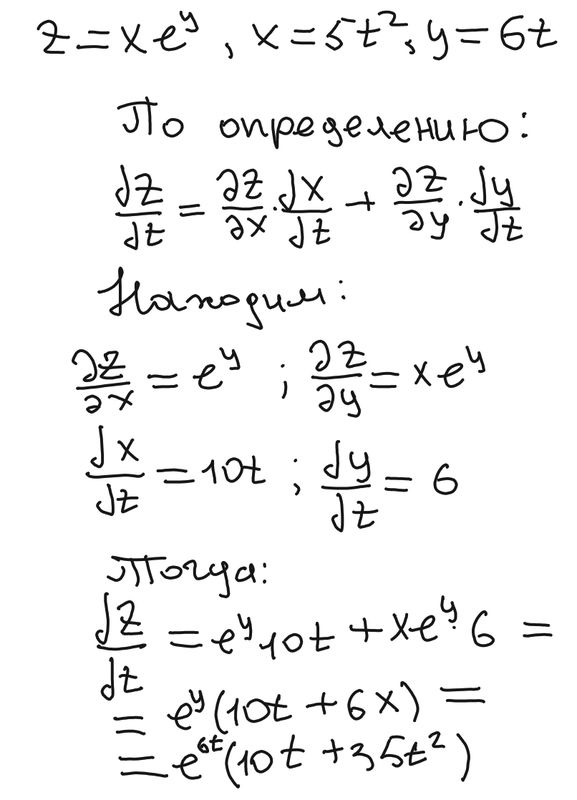 z = xe^y, x = 5t², y = 6t
По определению:
dz/dt = ∂z/∂x · dx/dt + ∂z/∂y · dy/dt
Находим:
∂z/∂x = e^y ; ∂z/∂y = xe^y
dx/dt = 10t ; dy/dt = 6
Тогда:
dz/dt = e^y 10t + xe^y · 6 =
= e^y(10t + 6x) =
= e^6t(10t + 35t²)